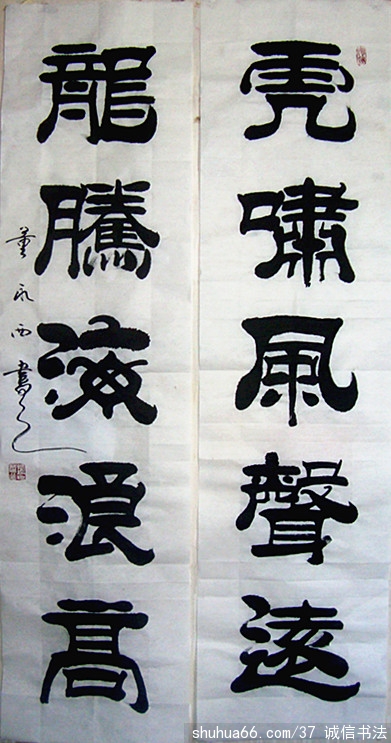 虎嘯風聲遠
龍騰海浪高
董永西書
shuhua66.com/37 诚信书法